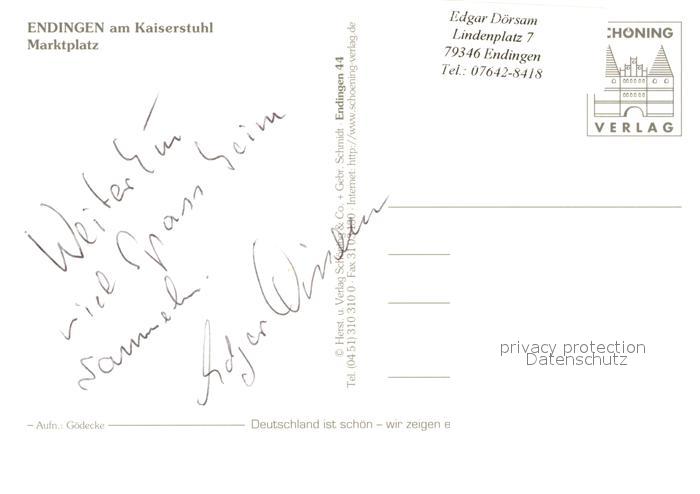 ENDINGEN am Kaiserstuhl
Marktplatz
Weiterhin
viel Spass beim
sammeln.
Edgar Dörsam
© Herst. u. Verlag Schöning & Co. + Gebr. Schmidt · Endingen 44
Tel. (04 51) 310 310 0 · Fax 310 · Internet: http://www.schoening-verlag.de
Edgar Dörsam
Lindenplatz 7
79346 Endingen
Tel.: 07642-8418
CHÖNING
VERLAG
privacy protection
Datenschutz
Aufn.: Gödecke
Deutschland ist schön – wir zeigen e